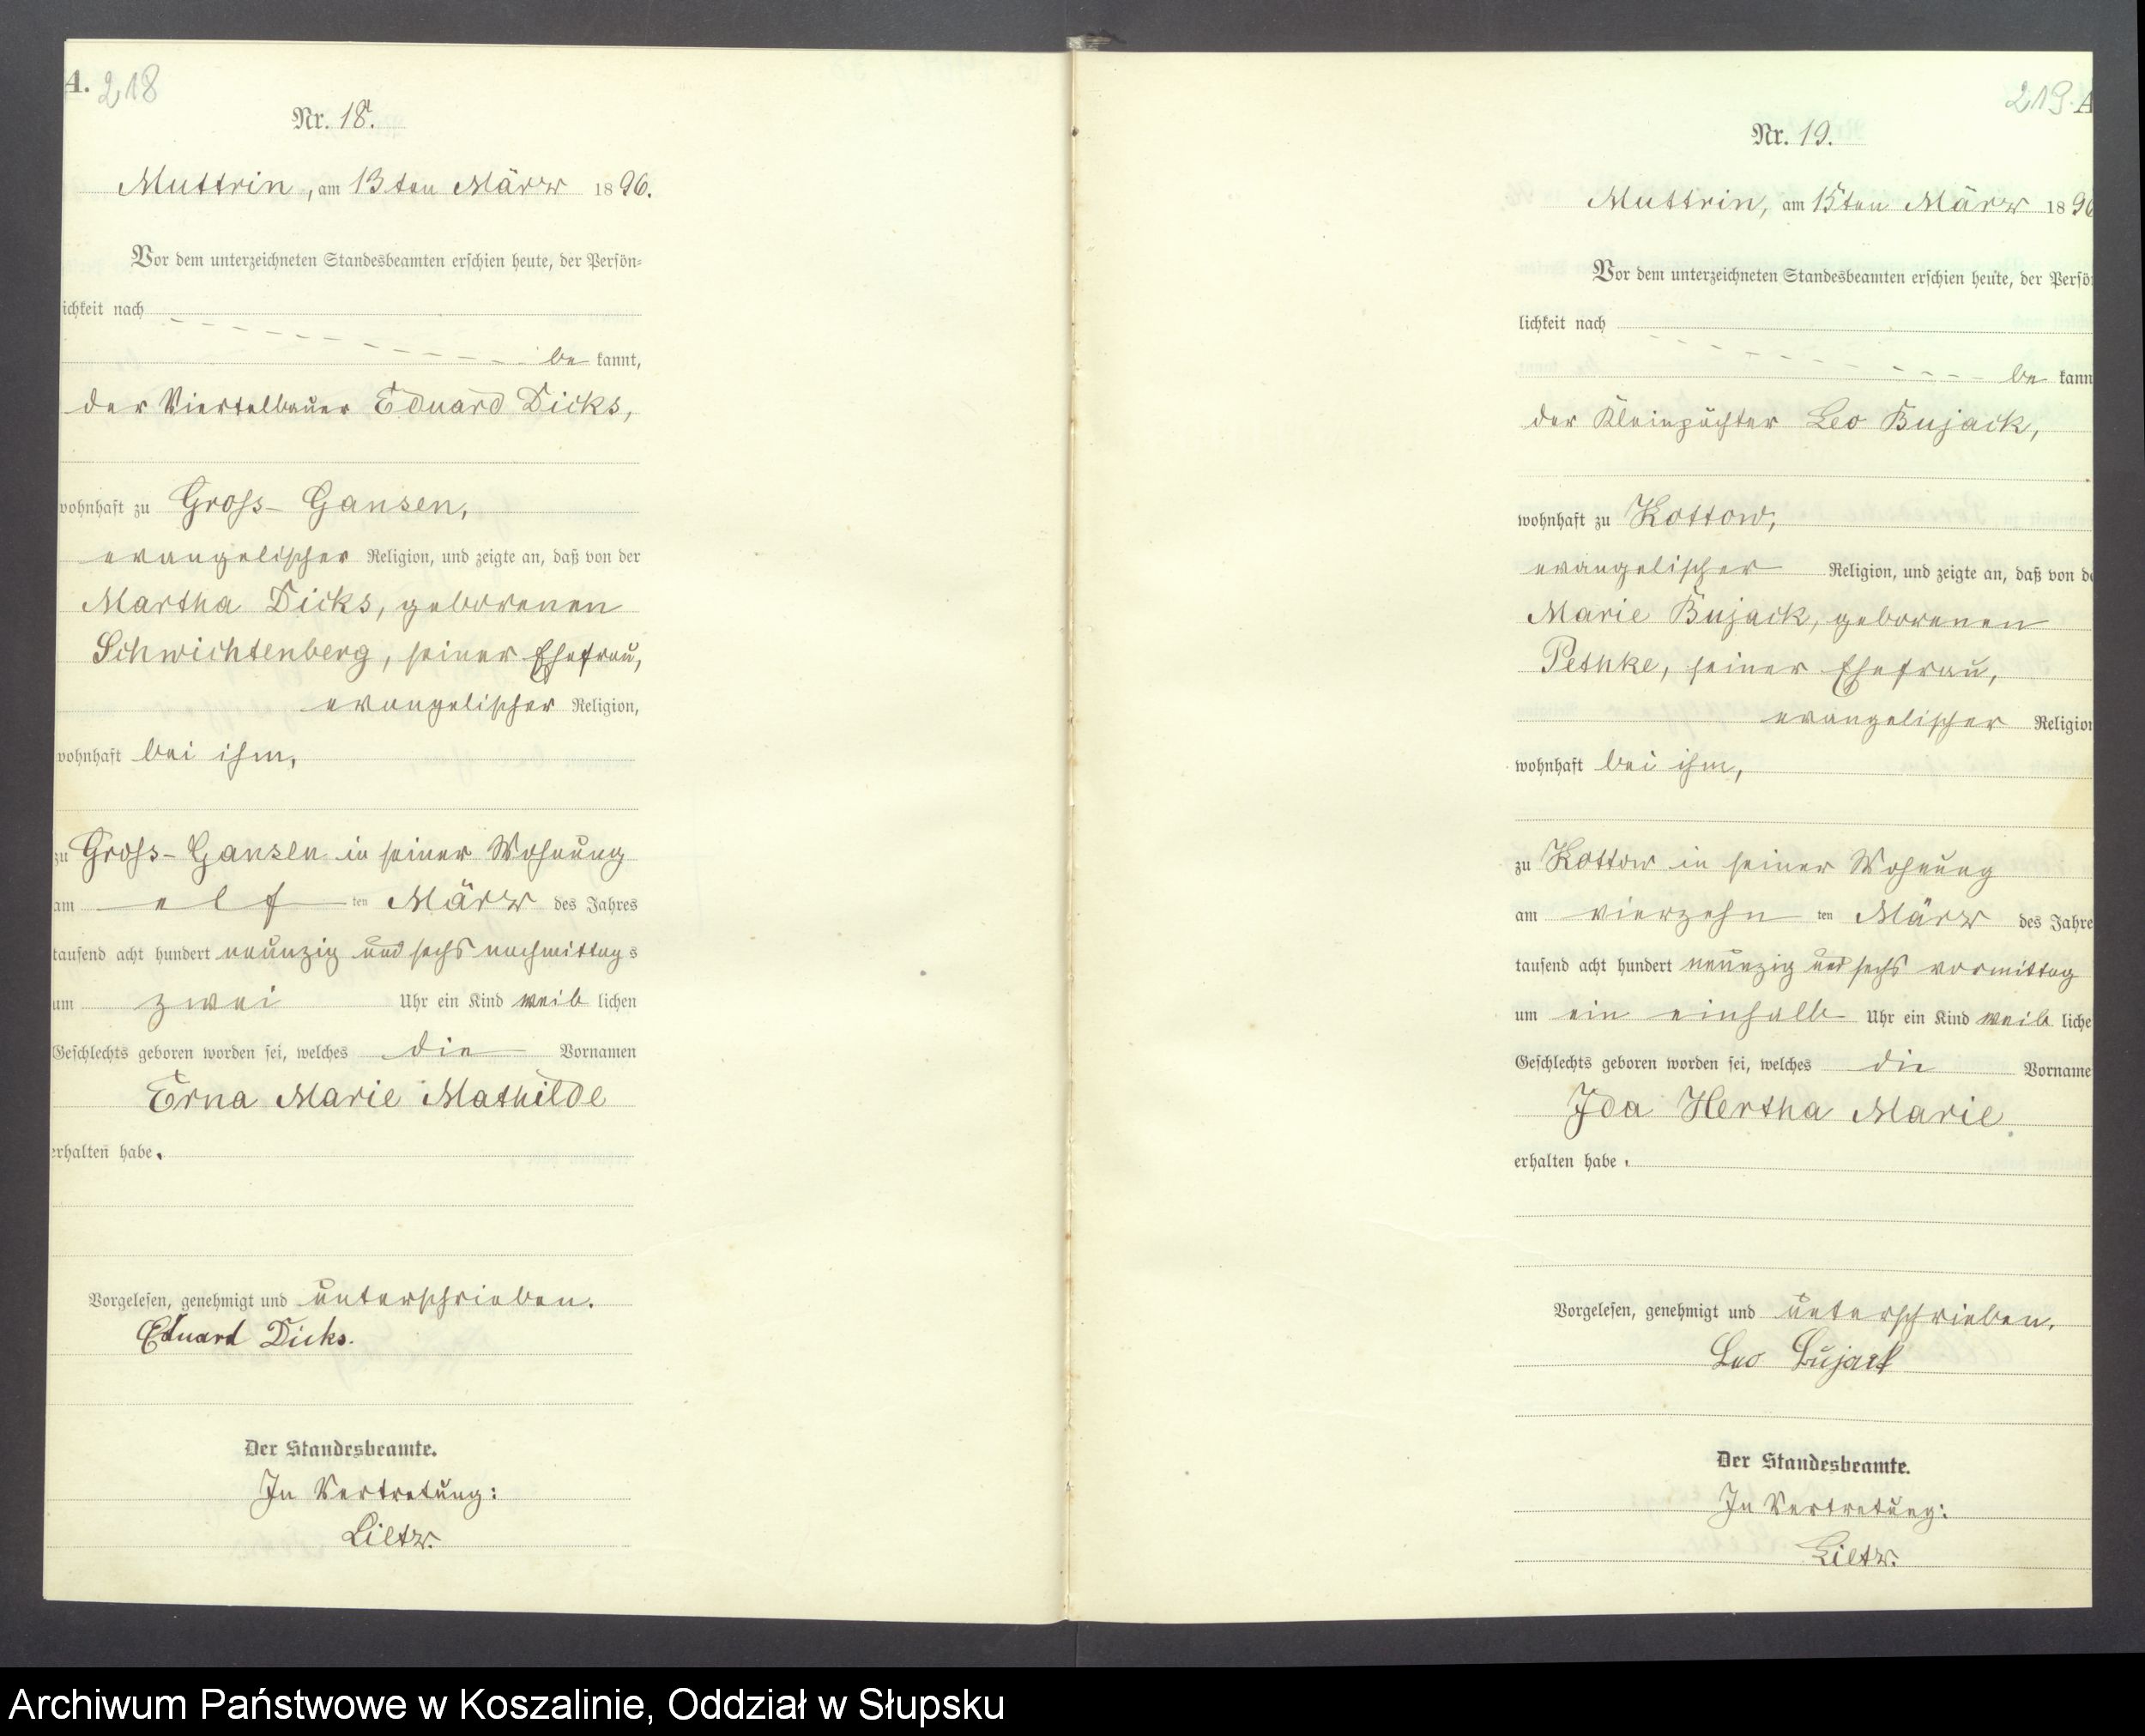 A. 218
Nr. 18.
Muttrin, am 13ten März 1896.
Vor dem unterzeichneten Standesbeamten erschien heute, der Persön-
ichkeit nach
be kannt,
der Viertelbauer Eduard Dicks,
wohnhaft zu Gross-Gansen,
evangelischer Religion, und zeigte an, daß von der
Martha Dicks, geborenen
Schwichtenberg, seiner Ehefrau,
evangelischer Religion,
wohnhaft bei ihm,
zu Gross-Gansen in seiner Wohnung
am elf ten März des Jahres
tausend acht hundert neunzig und sechs nachmittag s
um zwei Uhr ein Kind weib lichen
Geschlechts geboren worden sei, welches die Vornamen
Erna Marie Mathilde
erhalten habe.
Vorgelesen, genehmigt und unterschrieben.
Eduard Dicks.
Der Standesbeamte.
In Vertretung:
Lietz.
219. A
Nr. 19.
Muttrin, am 15ten März 1896
Vor dem unterzeichneten Standesbeamten erschien heute, der Persö
lichkeit nach
be kann
der Kleinpächter Leo Bujack,
wohnhaft zu Kottow,
evangelischer Religion, und zeigte an, daß von de
Marie Bujack, geborenen
Pethke, seiner Ehefrau,
evangelischer Religion
wohnhaft bei ihm,
zu Kottow in seiner Wohnung
am vierzehn ten März des Jahre
tausend acht hundert neunzig und sechs vormittag
um ein einhalb Uhr ein Kind weib liche
Geschlechts geboren worden sei, welches die Vorname
Ida Hertha Marie
erhalten habe.
Vorgelesen, genehmigt und unterschrieben.
Leo Bujack
Der Standesbeamte.
In Vertretung:
Lietz.
Archiwum Państwowe w Koszalinie, Oddział w Słupsku